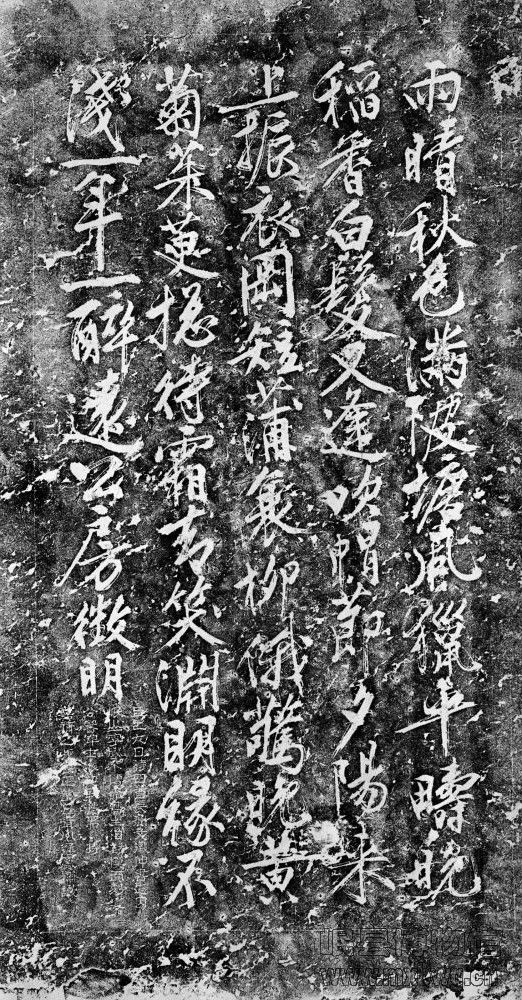 雨晴秋色滿陂塘風獵平疇晚
稻香白髮又逢吹帽節夕陽來
上振衣岡短蒲衰柳俄驚晚黃
菊茱萸揔待霜却笑淵明緣不
淺一年一醉遠公房徵明